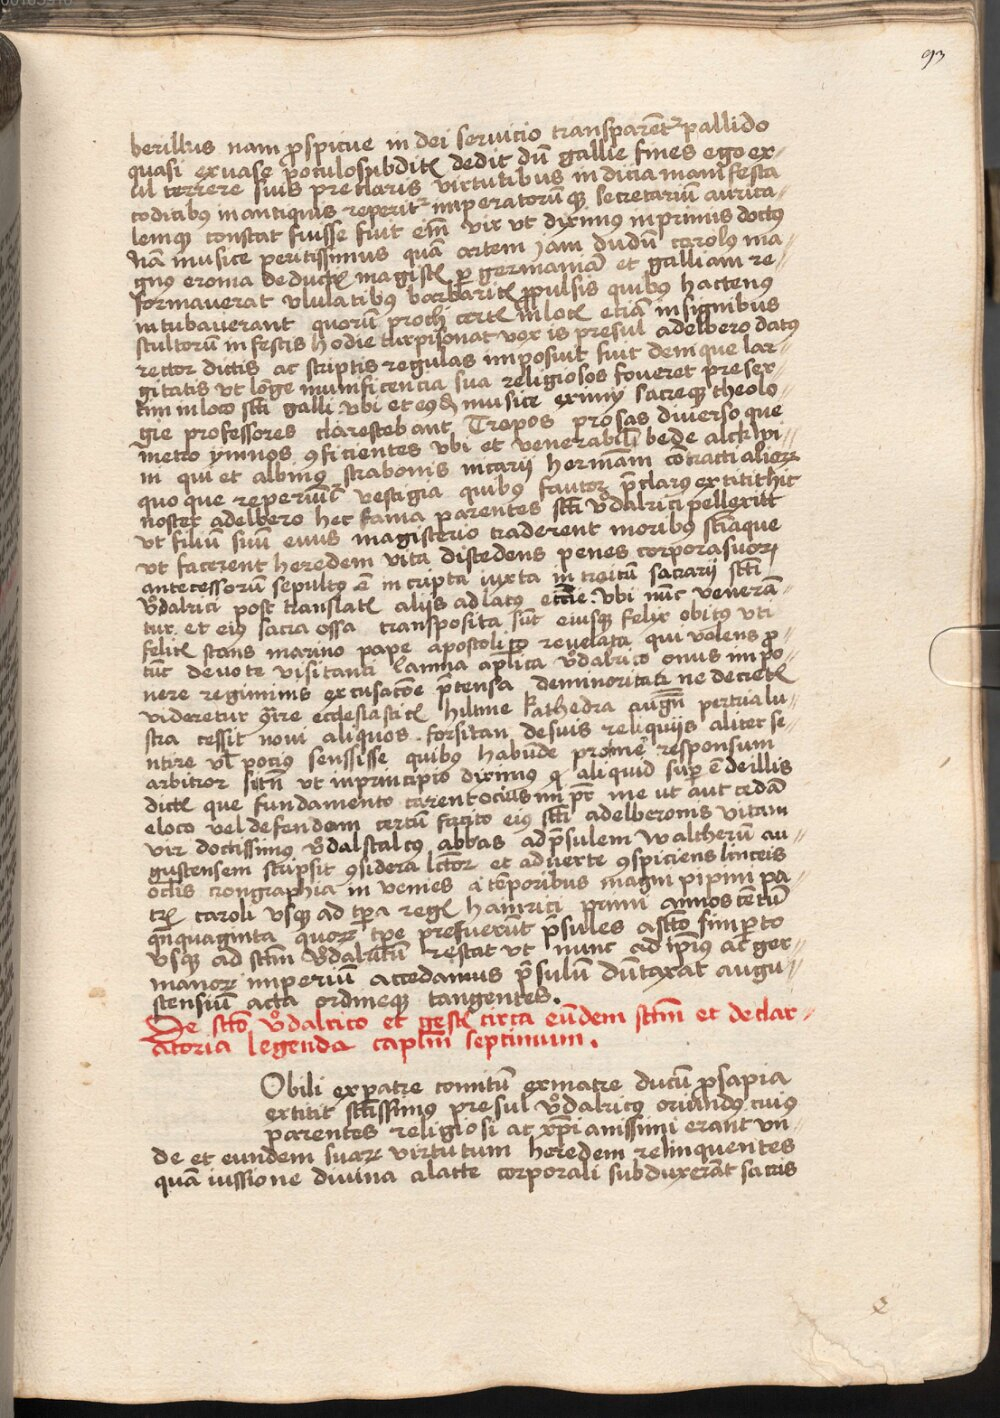 93
berillus nam ꝓspicue in dei seruicio transparēt᷑ pallido
quasi ex vase poculo subditꝭ dedit dū gallie fines ego ex-
ul terrere suis preclaris virtutibus indicia manifesta
codicibꝰ in antiquis reperit᷑ imperatorūqꝫ secretarium aurica-
lemqꝫ constat fuisse fuit em̄ vir vt diximus inprimis doctꝰ
nā musice peritissimus quā artem iam dudū carolꝰ ma-
gnꝰ e roma deductꝭ magistꝭ ꝑ germaniā et galliam re-
formauerat vlulatibꝰ barbaricꝭ ꝓpulsis quibꝰ hactenꝰ
intubauerant quorū proch certꝭ in locꝭ etiā insignibus
scultorū in festis hodie turpisonat vox is presul adelbero datꝰ
rector dictis ac scriptis regulas imposuit fuit denique lar-
gitatis vt longe munificencia sua religiosos foueret preser-
tim in loco scti galli vbi et eꝰdē musice eximij sacreqꝫ theolo-
gie professores clarescebant Tropos prosas diverso que
metro ymnos ꝯficientes vbi et venerabilis bede alckwi-
ni qui et albinus strabonis notarij hermanni contracti alioꝝ
quoque reperiūt᷑ vestigia quibꝰ fautor p̄clarꝰ extitit hic
noster adelbero hec fama parentes scti vͦdalrici pellexitt
vt filiū suū euus magisterio traderent moribus sciāque
vt facerent heredem vita discedens penes corpora suoꝝ
antecessorū sepultꝰ ē in cripta iuxta introitū sacrarij scti
vͦdalrici post translatꝭ aliis ad latꝰ eccīe vbi nūc venerā-
tur et eiꝰ sacra ossa transposita sūt eiusqꝫ felix obitꝰ vti
felicꝭ stans marino pape apostolico reuelata qui volens ꝓ-
tūc deuote visitanti lanna aplica vͦdalrico onus impo-
nere regiminis excusacōe p̄tensa de minoritati ne decretꝭ
videretur ꝯire ecclesiasticꝭ hiltine kathedra augn̄ per tria lu-
stra cessit noui aliquos forsitan de suis reliquiis aliter se-
ntire vl̄ pocius senssisse quibꝰ habūde prome responsum
arbitror sitn̄ vt in principio diximus ꝙ aliquid suꝑ ē de illis
dictꝭ que fundamento carent ocius impēt me ut aut cedā
e loco vel defendam certū facito eiꝰ scti adelberonis vitam
vir doctissimꝰ vͦdalscalcus abbas ad p̄sulem waltherū au-
gustensem scripsit ꝯsidera lector et aduerte ꝯspiciens linceis
oclis cronographia in venies a temporibus magni pipini pa-
trꝭ caroli vsqꝫ ad tꝑa regꝭ hainrici primi annos centū
quinquaginta quoꝝ tꝑe prefuerūt p̄sules a scto simperto
vsqꝫ ad sctm vͦdalricum restat vt nunc ad ip̄ius ac ger-
manoꝝ imperiū accedamus p̄sulum dūtaxat augu-
stensiū acta ordineqꝫ tangentes.
De scto vͦdalrico et gestꝭ circa eūdem sctm et declar-
atoria legenda caplm septimum.
Obili ex patre comitū ex matre ducū ꝓsapia
extitit sctissimꝰ presul vͦdalricꝰ oriundꝰ cuiꝰ
parentes religiosi ac xp̄ianissimi erant vn-
de et eundem suaꝝ virtutum heredem relinquentes
quā iussione diuina a lacte corporali subduxerāt sacris